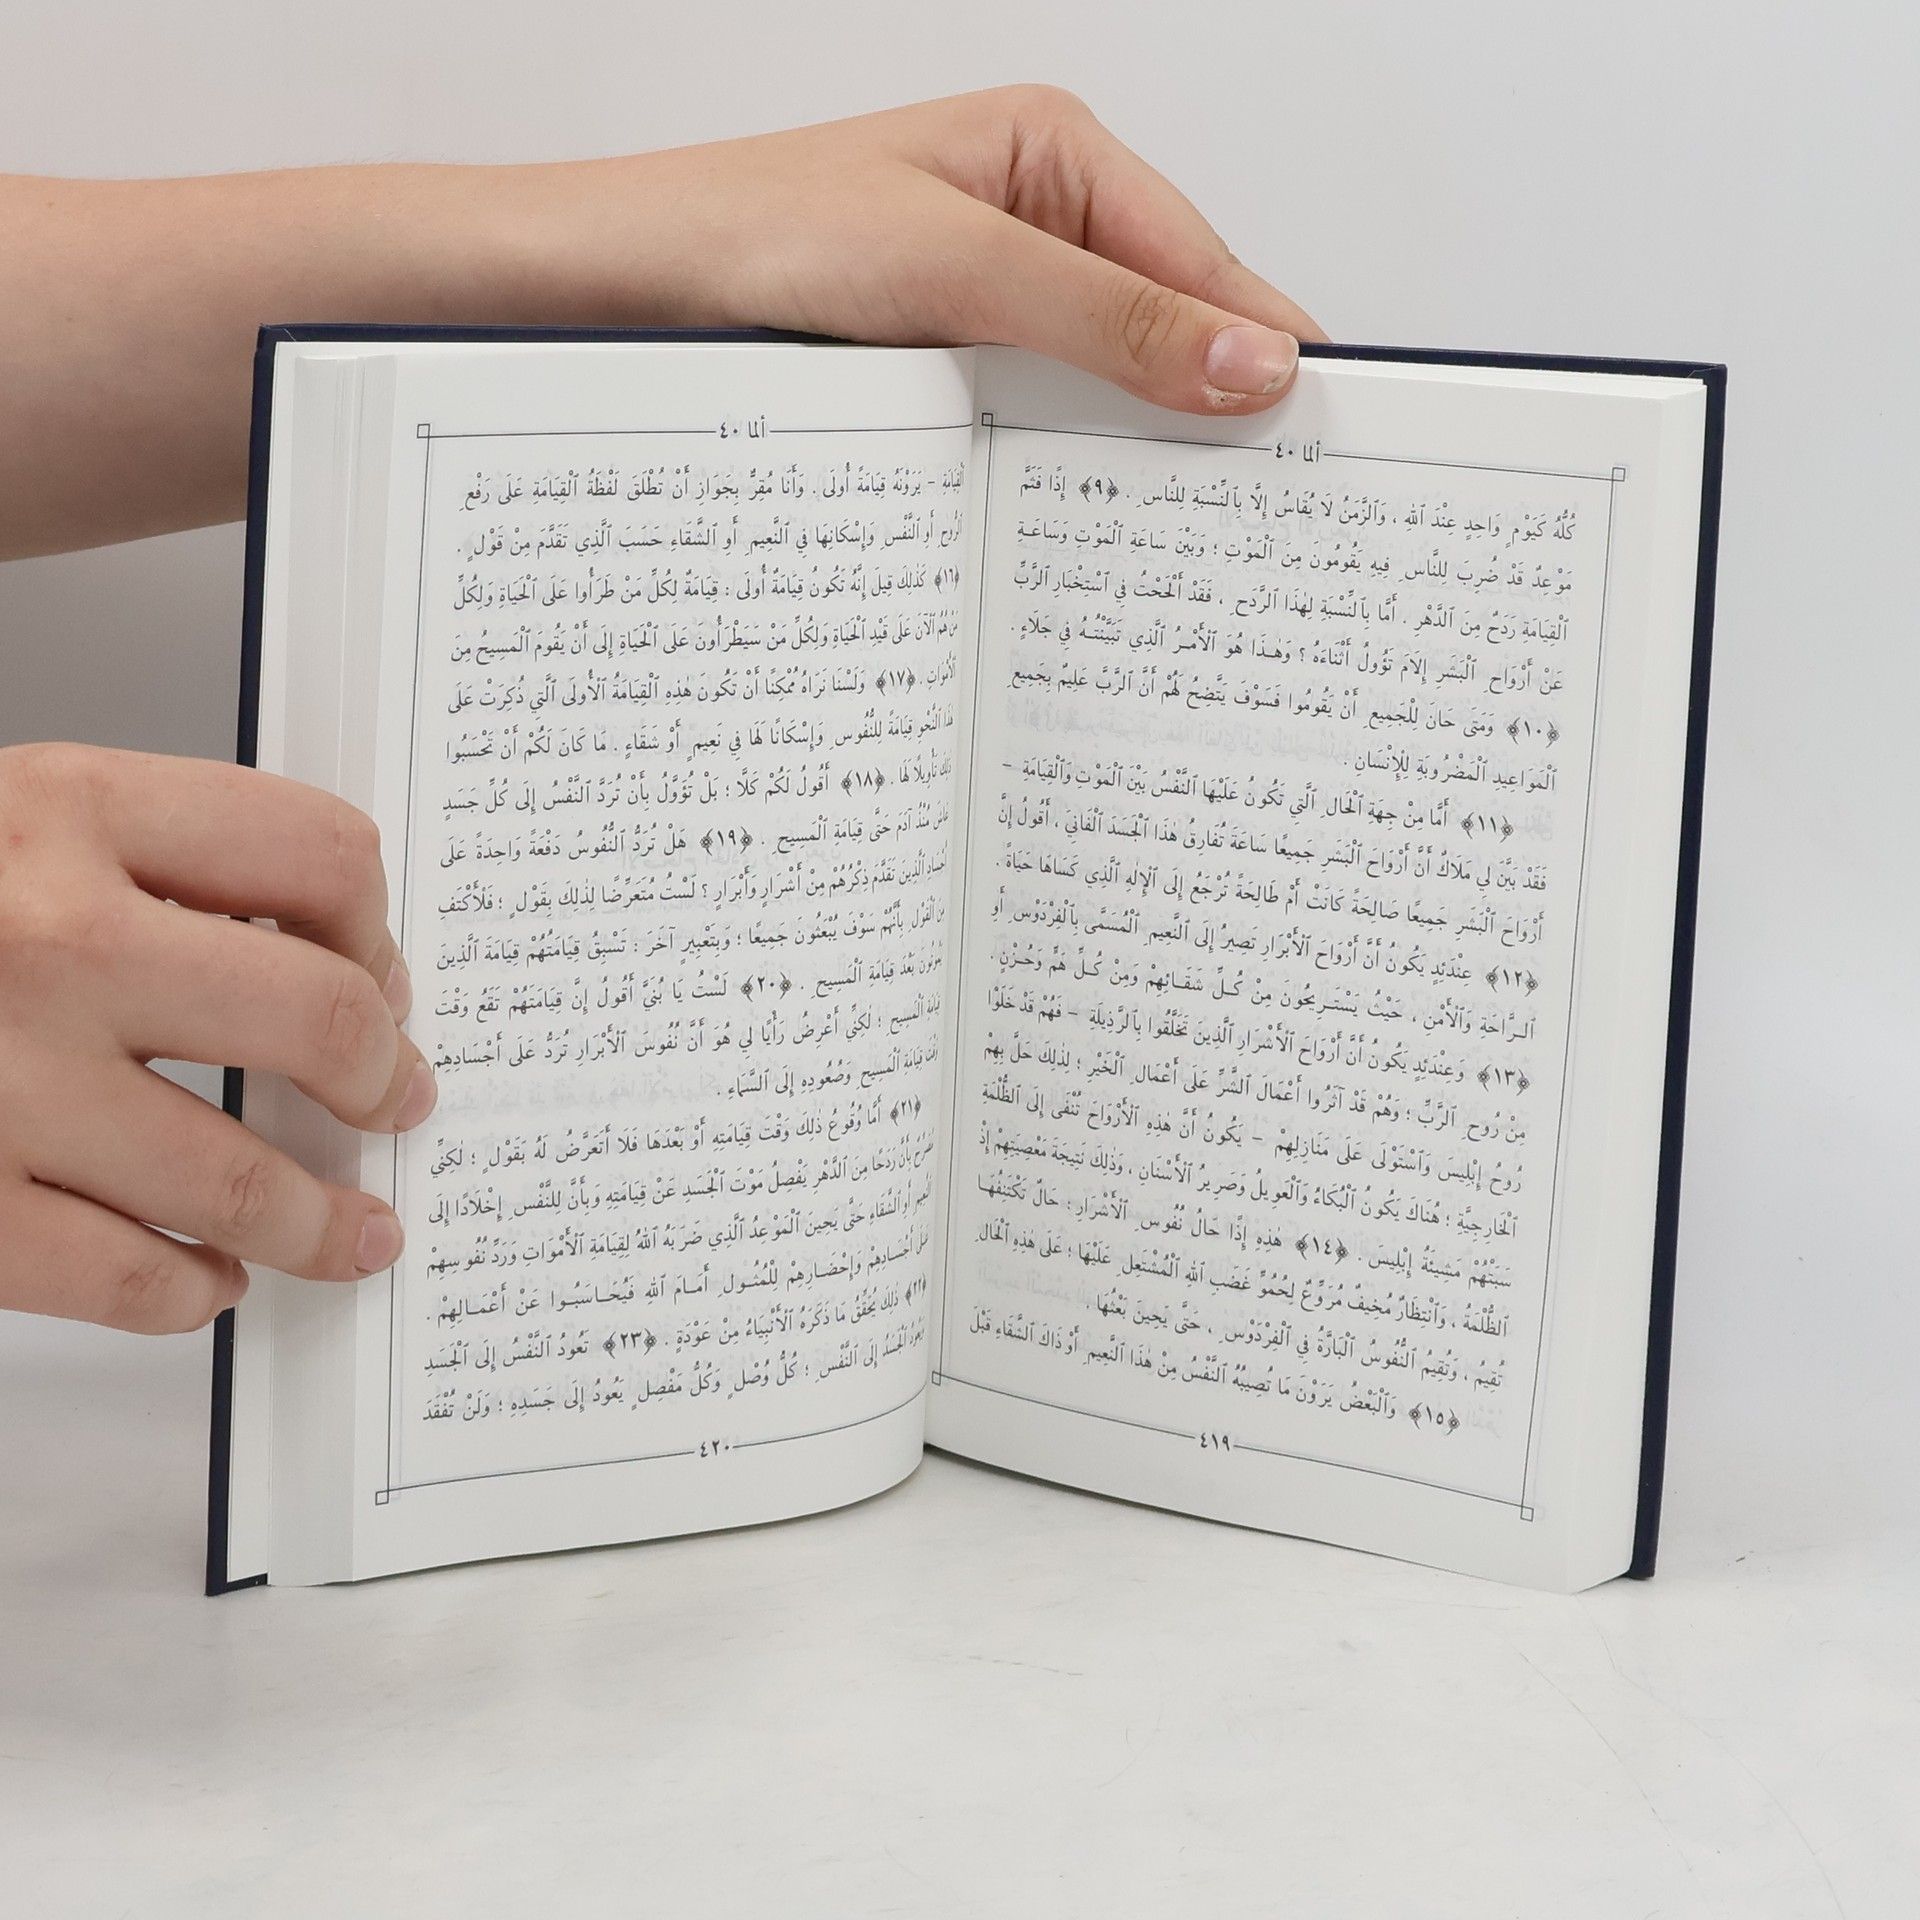 ألما ٤٠
كُلُّهُ كَيَوْمٍ وَاحِدٍ عِنْدَ ٱللهِ ، وَٱلزَّمَنُ لَا يُقَاسُ إِلَّا بِٱلنِّسْبَةِ لِلنَّاسِ . ﴿٩﴾ إِذًا فَثَمَّ
مَوْعِدٌ قَدْ ضُرِبَ لِلنَّاسِ فِيهِ يَقُومُونَ مِنَ ٱلْمَوْتِ ؛ وَبَيْنَ سَاعَةِ ٱلْمَوْتِ وَسَاعَةِ
ٱلْقِيَامَةِ رَدَحٌ مِنَ ٱلدَّهْرِ . أَمَّا بِٱلنِّسْبَةِ لِهٰذَا ٱلرَّدَحِ ، فَقَدْ أَلْحَحْتُ فِي ٱسْتِخْبَارِ ٱلرَّبِّ
عَنْ أَرْوَاحِ ٱلْبَشَرِ إِلَامَ تَؤُولُ أَثْنَاءَهُ ؟ وَهٰذَا هُوَ ٱلْأَمْرُ ٱلَّذِي تَبَيَّنْتُهُ فِي جَلَاءٍ .
﴿١٠﴾ وَمَتَى حَانَ لِلْجَمِيعِ أَنْ يَقُومُوا فَسَوْفَ يَتَّضِحُ لَهُمْ أَنَّ ٱلرَّبَّ عَلِيمٌ بِجَمِيعِ
ٱلْمَوَاعِيدِ ٱلْمَضْرُوبَةِ لِلْإِنْسَانِ .
﴿١١﴾ أَمَّا مِنْ جِهَةِ ٱلْحَالِ ٱلَّتِي تَكُونُ عَلَيْهَا ٱلنَّفْسُ بَيْنَ ٱلْمَوْتِ وَٱلْقِيَامَةِ –
فَقَدْ بَيَّنَ لِي مَلَاكٌ أَنَّ أَرْوَاحَ ٱلْبَشَرِ جَمِيعًا سَاعَةَ تُفَارِقُ هٰذَا ٱلْجَسَدَ ٱلْفَانِيَ ، أَقُولُ إِنَّ
أَرْوَاحَ ٱلْبَشَرِ جَمِيعًا صَالِحَةً كَانَتْ أَمْ طَالِحَةً تُرْجَعُ إِلَى ٱلْإِلٰهِ ٱلَّذِي كَسَاهَا حَيَاةً .
﴿١٢﴾ عِنْدَئِدٍ يَكُونُ أَنَّ أَرْوَاحَ ٱلْأَبْرَارِ تَصِيرُ إِلَى ٱلنَّعِيمِ ٱلْمُسَمَّى بِٱلْفِرْدَوْسِ أَوِ
ٱلرَّاحَةِ وَٱلْأَمْنِ ، حَيْثُ يَسْتَرِيحُونَ مِنْ كُلِّ شَقَائِهِمْ وَمِنْ كُلِّ هَمٍّ وَحُزْنٍ .
﴿١٣﴾ وَعِنْدَئِدٍ يَكُونُ أَنَّ أَرْوَاحَ ٱلْأَشْرَارِ ٱلَّذِينَ تَخَلَّقُوا بِٱلرَّذِيلَةِ – فَهُمْ قَدْ خَلَوْا
مِنْ رُوحِ ٱلرَّبِّ ؛ وَهُمْ قَدْ آثَرُوا أَعْمَالَ ٱلشَّرِّ عَلَى أَعْمَالِ ٱلْخَيْرِ ؛ لِذٰلِكَ حَلَّ بِهِمْ
رُوحُ إِبْلِيسَ وَٱسْتَوْلَى عَلَى مَنَازِلِهِمْ – يَكُونُ أَنَّ هٰذِهِ ٱلْأَرْوَاحَ تُنْفَى إِلَى ٱلظُّلْمَةِ
ٱلْخَارِجِيَّةِ ؛ هُنَاكَ يَكُونُ ٱلْبُكَاءُ وَٱلْعَوِيلُ وَصَرِيرُ ٱلْأَسْنَانِ ، وَذٰلِكَ نَتِيجَةَ مَعْصِيَتِهِمْ إِذْ
سَبَتْهُمْ مَشِيئَةُ إِبْلِيسَ . ﴿١٤﴾ هٰذِهِ إِذًا حَالُ نُفُوسِ ٱلْأَشْرَارِ : حَالٌ تَكْتَنِفُهَا
ٱلظُّلْمَةُ ، وَٱنْتِظَارٌ مُخِيفٌ مُرَوِّعٌ لِحُمُوِّ غَضَبِ ٱللهِ ٱلْمُشْتَعِلِ عَلَيْهَا ؛ عَلَى هٰذِهِ ٱلْحَالِ
تُقِيمُ ، وَتُقِيمُ ٱلنُّفُوسُ ٱلْبَارَّةُ فِي ٱلْفِرْدَوْسِ ، حَتَّى يَحِينَ بَعْثُهَا .
﴿١٥﴾ وَٱلْبَعْضُ يَرَوْنَ مَا تُصِيبُهُ ٱلنَّفْسُ مِنْ هٰذَا ٱلنَّعِيمِ أَوْ ذَاكَ ٱلشَّقَاءِ قَبْلَ
٤١٩
ألما ٤٠
ٱلْقِيَامَةِ – يَرَوْنَهُ قِيَامَةً أُولَى . وَأَنَا مُقِرٌّ بِجَوَازِ أَنْ تُطْلَقَ لَفْظَةُ ٱلْقِيَامَةِ عَلَى رَفْعِ
ٱلرُّوحِ أَوِ ٱلنَّفْسِ وَإِسْكَانِهَا فِي ٱلنَّعِيمِ أَوِ ٱلشَّقَاءِ حَسَبَ ٱلَّذِي تَقَدَّمَ مِنْ قَوْلٍ .
﴿١٦﴾ كَذٰلِكَ قِيلَ إِنَّهُ تَكُونُ قِيَامَةٌ أُولَى : قِيَامَةٌ لِكُلِّ مَنْ طَرَأُوا عَلَى ٱلْحَيَاةِ وَلِكُلِّ
مَنْ هُمُ ٱلْآنَ عَلَى قَيْدِ ٱلْحَيَاةِ وَلِكُلِّ مَنْ سَيَطْرَأُونَ عَلَى ٱلْحَيَاةِ إِلَى أَنْ يَقُومَ ٱلْمَسِيحُ مِنَ
ٱلْأَمْوَاتِ . ﴿١٧﴾ وَلَسْنَا نَرَاهُ مُمْكِنًا أَنْ تَكُونَ هٰذِهِ ٱلْقِيَامَةُ ٱلْأُولَى ٱلَّتِي ذُكِرَتْ عَلَى
هٰذَا ٱلنَّحْوِ قِيَامَةً لِلنُّفُوسِ وَإِسْكَانًا لَهَا فِي نَعِيمٍ أَوْ شَقَاءٍ . مَا كَانَ لَكُمْ أَنْ تَحْسَبُوا
ذٰلِكَ تَأْوِيلًا لَهَا . ﴿١٨﴾ أَقُولُ لَكُمْ كَلَّا ؛ بَلْ تُؤَوَّلُ بِأَنْ تُرَدَّ ٱلنَّفْسُ إِلَى كُلِّ جَسَدٍ
عَاشَ مُنْذُ آدَمَ حَتَّى قِيَامَةِ ٱلْمَسِيحِ . ﴿١٩﴾ هَلْ تُرَدُّ ٱلنُّفُوسُ دَفْعَةً وَاحِدَةً عَلَى
أَجْسَادِ ٱلَّذِينَ تَقَدَّمَ ذِكْرُهُمْ مِنْ أَشْرَارٍ وَأَبْرَارٍ ؟ لَسْتُ مُتَعَرِّضًا لِذٰلِكَ بِقَوْلٍ ؛ فَلْأَكْتَفِ
مِنَ ٱلْقَوْلِ بِأَنَّهُمْ سَوْفَ يُبْعَثُونَ جَمِيعًا ؛ وَبِتَعْبِيرٍ آخَرَ : تَسْبِقُ قِيَامَتُهُمْ قِيَامَةَ ٱلَّذِينَ
يَمُوتُونَ بَعْدَ قِيَامَةِ ٱلْمَسِيحِ . ﴿٢٠﴾ لَسْتُ يَا بُنَيَّ أَقُولُ إِنَّ قِيَامَتَهُمْ تَقَعُ وَقْتَ
قِيَامَةِ ٱلْمَسِيحِ ؛ لٰكِنِّي أَعْرِضُ رَأْيًا لِي هُوَ أَنَّ نُفُوسَ ٱلْأَبْرَارِ تُرَدُّ عَلَى أَجْسَادِهِمْ
وَقْتَ قِيَامَةِ ٱلْمَسِيحِ وَصُعُودِهِ إِلَى ٱلسَّمَاءِ .
﴿٢١﴾ أَمَّا وُقُوعُ ذٰلِكَ وَقْتَ قِيَامَتِهِ أَوْ بَعْدَهَا فَلَا أَتَعَرَّضُ لَهُ بِقَوْلٍ ؛ لٰكِنِّي
بِأَنَّ رَدَحًا مِنَ ٱلدَّهْرِ يَفْصِلُ مَوْتَ ٱلْجَسَدِ عَنْ قِيَامَتِهِ وَبِأَنَّ لِلنَّفْسِ إِخْلَادًا إِلَى
ٱلنَّعِيمِ أَوِ ٱلشَّقَاءِ حَتَّى يَحِينَ ٱلْمَوْعِدُ ٱلَّذِي ضَرَبَهُ ٱللهُ لِقِيَامَةِ ٱلْأَمْوَاتِ وَرَدِّ نُفُوسِهِمْ
عَلَى أَجْسَادِهِمْ وَإِحْضَارِهِمْ لِلْمُثُولِ أَمَامَ ٱللهِ فَيُحَاسَبُوا عَنْ أَعْمَالِهِمْ .
﴿٢٢﴾ ذٰلِكَ يُحَقِّقُ مَا ذَكَرَهُ ٱلْأَنْبِيَاءُ مِنْ عَوْدَةٍ . ﴿٢٣﴾ تَعُودُ ٱلنَّفْسُ إِلَى ٱلْجَسَدِ
وَيَعُودُ ٱلْجَسَدُ إِلَى ٱلنَّفْسِ ؛ كُلُّ وُصْلٍ وَكُلُّ مَفْصِلٍ يَعُودُ إِلَى جَسَدِهِ ؛ وَلَنْ تُفْقَدَ
٤٢٠